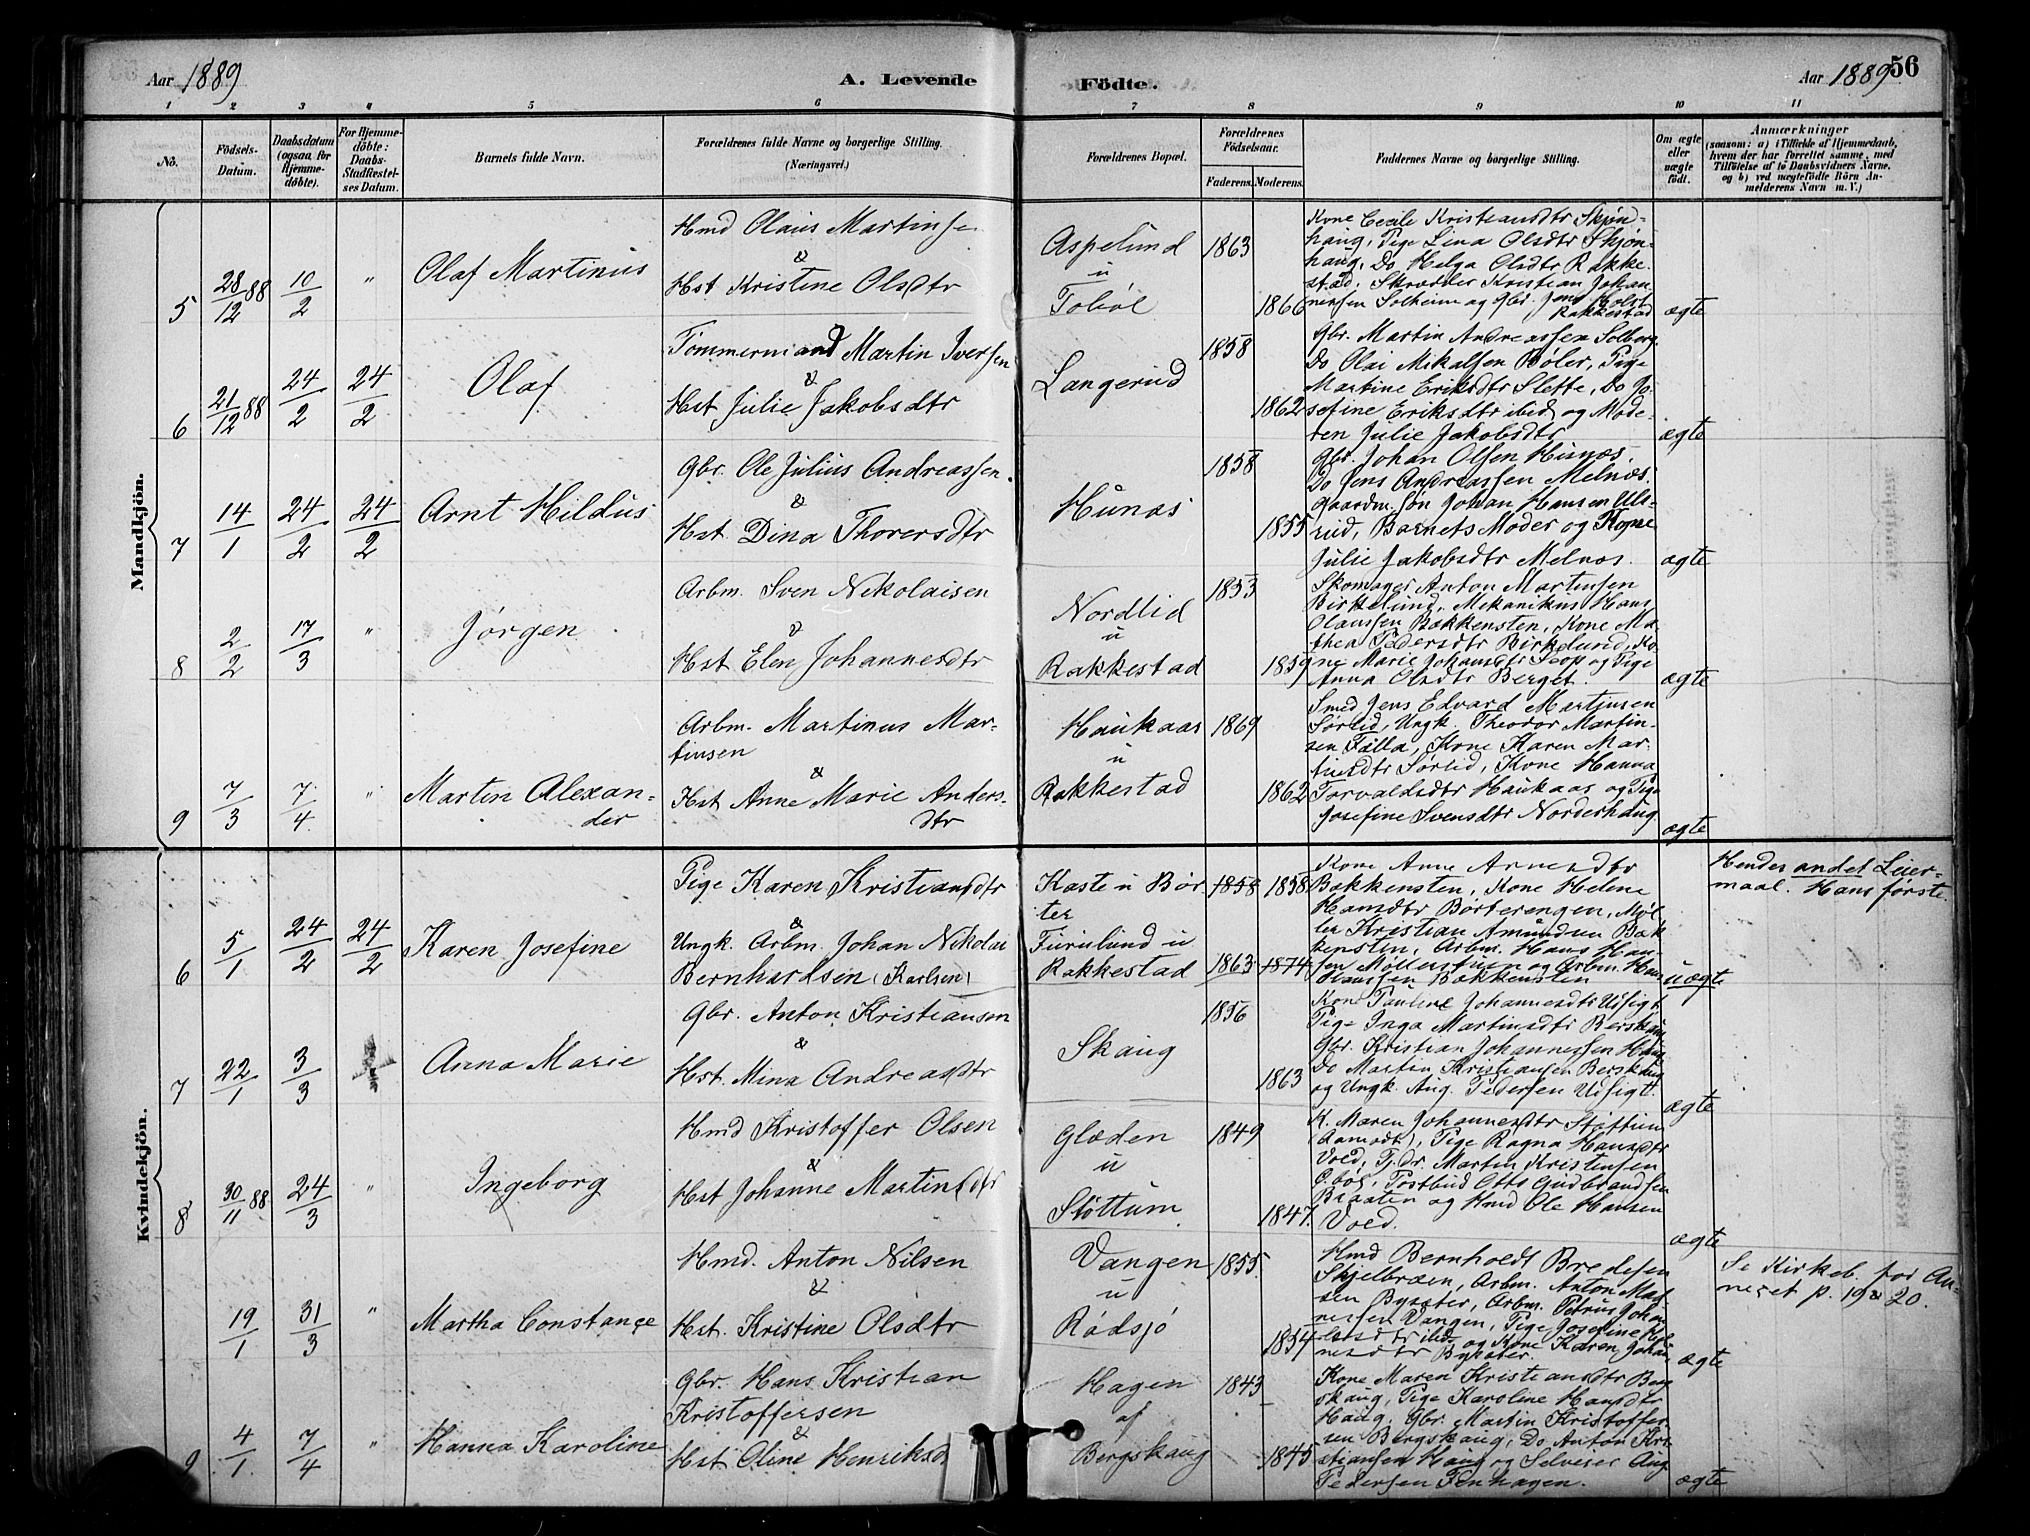 Aar 1889
A. Levende
Födte.
Aar 1889
56
1 2 3 4 5 6 7 8 9 10 11
No.
Födsels-
Datum.
Daabsdatum
(ogsaa for
Hjemme-
döbte).
For Hjemme-
döbte:
Daabs-
Stadfæstel-
ses Datum.
Barnets fulde Navn.
Forældrenes fulde Navne og borgerlige Stilling.
(Næringsvei.)
Forældrenes Bopæl.
Forældrenes
Födselsaar.
Faderens. Moderens.
Faddernes Navne og borgerlige Stilling.
Om ægte
eller
uægte
født.
Anmærkninger
(saasom: a) i Tilfælde af Hjemmedaab,
hvem der har forrettet samme, med
Tilföielse af to Daabsvidners Navne.
og b) ved uægtefödte Börn An-
melderens Navn m. V.)
Mandkjön.
5
28/12 88
10/2
"
Olaf Martinus
Hmd Olaus Martinsen
&
Hst Kristine Olsdtr
Aspelund
u
Toböl
1863
1866
Kone Cecile Kristiansdtr Skjøn-
haug, Pige Lina Olsdtr Skjøn-
haug, Do Helga Olsdtr Rakke-
stad, Skrædder Kristian Johan-
nersen Solheim og Gbr. Jens Holst
Rakkestad
ægte
6
21/12 88
24/2
24/2
Olaf
Tømmermand Martin Iversen
&
Hst Julie Jakobsdtr
Langerud
1858
1862
Gbr. Martin Andreassen Solberg
Do Olai Mikalsen Bøler, Pige
Martine Eriksdtr Slette, Do Jo-
sefine Eriksdtr ibid og Mode-
ren Julie Jakobsdtr
ægte
7
14/1
24/2
24/2
Arnt Hildus
Gbr. Ole Julius Andreassen
&
Hst. Dina Thorersdtr
Hunæs
1858
1855
Gbr. Johan Olsen Hunæs.
Do Jens Andreassen Melnæs.
Gaardm. Søn Johan Hansen Uls-
rud, Barnets Moder og Kone
Julie Jakobsdtr Melnæs.
ægte
8
2/2
17/3
"
Jørgen
Arbm. Sven Nikolaisen
&
Hst Elen Johannesdtr
Nordlid
u
Rakkestad
1853
1859
Skomager Anton Martinsen
Birkelund, Mekanikus Hans
Olaussen Bakkensten, Kone Ma-
thea Pedersdtr Birkelund, Ko-
ne Marie Johansdtr Slop og Pige
Anna Olsdtr Berget.
ægte
9
7/3
7/4
"
Martin Alexan-
der
Arbm. Martinus Mar-
tinsen
&
Hst Anne Marie Anders-
dtr
Haukaas
u
Rakkestad
1869
1862
Smed Jens Edvard Martinsen
Sørlid, Ungk. Theodor Martin-
sen Fålla, Kone Karen Mar-
tinsdtr Sørlid, Kone Hanna
Torvaldsdtr Haukaas og Pige
Josefine Svensdtr Norderhaug
ægte
Kvindekjön.
6
5/1
24/2
24/2
Karen Josefine
Pige Karen Kristiansdtr
&
Ungk. Arbm. Johan Nikolai
Bernhardsen (Karlsen)
Kaste u Bør-
ter
Furulund u
Rakkestad
1858
1858
1863
1874
Kone Anne Arnesdtr
Bakkensten, Kone Helene
Hansdtr Børterengen, Møl-
ler Kristian Amundsen Bak-
kensten, Arbm. Hans Han-
sen Møllerstuen og Arbm. Hans
Hansen Bakkensten
uægte
Hendes andet Leier-
maal. Hans første.
7
22/1
3/3
Anna Marie
Gbr. Anton Kristiansen
&
Hst. Mina Andreasdtr
Skaug
1856
1863
Kone Pauline Johannesdtr Udsigt,
Pige Inga Martinsdtr Berskaug
Gbr. Kristian Johannessen Haug
Do Martin Kristiansen Berskaug
og Ungk. Aug. Pedersen Udsigt.
ægte
8
30/11 88
24/3
"
Ingeborg
Hmd Kristoffer Olsen
&
Hst Johanne Martinsdtr
Glæden
u
Støttum
1849
1847.
K. Maren Johannesdtr Støttum
(Aamodt), Pige Ragna Hansdtr
Vold, Tj.dr. Martin Kristensen
Postbud Otto Gudbrandsen
Braaten og Hmd Ole Hansen
Vold.
ægte
19/1
31/3
"
Martha Constance
Hmd. Anton Nilsen
&
Hst. Kristine Olsdtr
Vangen
u
Rødsjø
1855.
1854
Hmd Bernholdt Bredesen
Skjelbræen, Arbm. Anton Mad-
sen Bysæter, Arbm. Petrus Johan-
nessen Vangen, Pige Josefine
ibid. og Kone Karen Johan-
nesdtr Bysæter.
ægte
Se Kirkeb. for An-
nexet p. 19 & 20.
9
4/1
7/4
"
Hanna Karoline
Gbr. Hans Kristian
Kristoffersen
&
Hst Oline Henriksd
Hagen
af
Bergskaug
1843
1845
Kone Maren Kristiansdtr Berg-
skaug, Pige Karoline Hansdtr
Haug, Gbr. Martin Kristoffer-
sen Bergskaug, Do Anton Kri-
stiansen Haug og Selveier Aug
Pedersen Fenhagen.
ægte